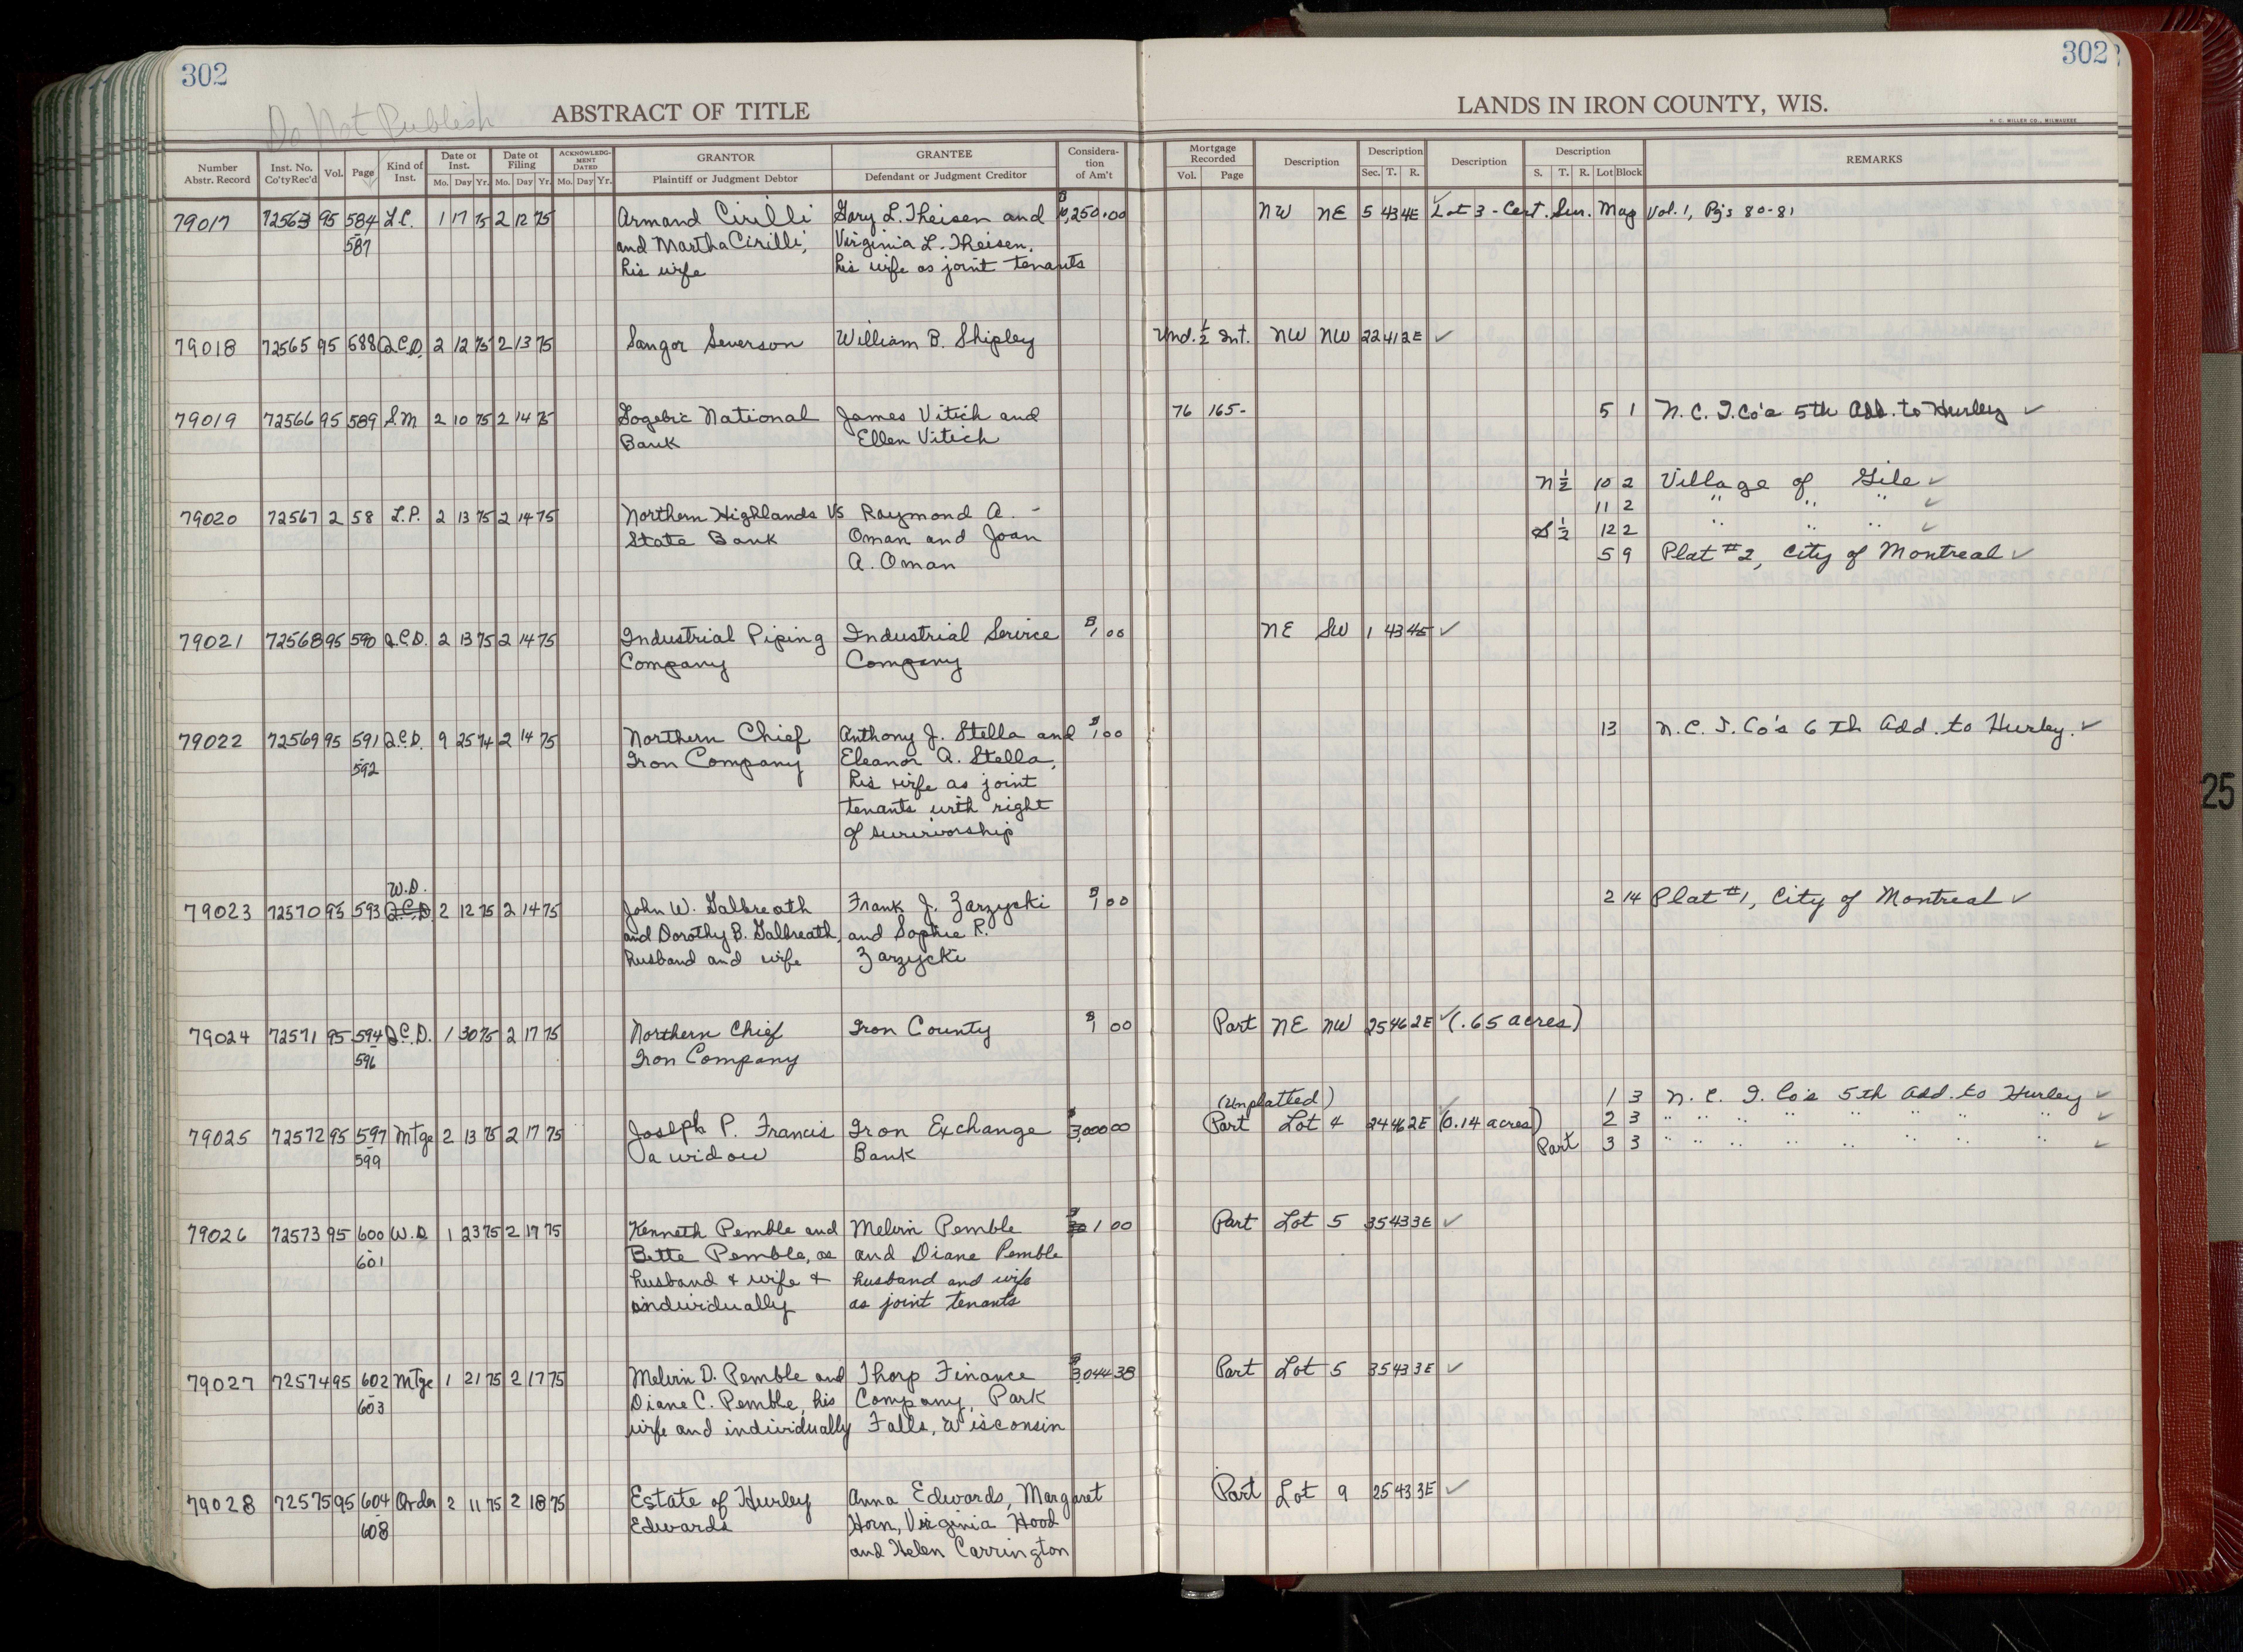 302
302
Do Not Publish
ABSTRACT OF TITLE
LANDS IN IRON COUNTY, WIS.
H. C. MILLER CO., MILWAUKEE
Number Abstr. Record | Inst. No. Co'ty Rec'd | Vol. | Page | Kind of Inst. | Date of Inst. Mo. Day Yr. | Date of Filing Mo. Day Yr. | ACKNOWLEDG-MENT DATED Mo. Day Yr. | GRANTOR Plaintiff or Judgment Debtor | GRANTEE Defendant or Judgment Creditor | Considera-tion of Am't | Mortgage Recorded Vol. Page | Description | Description Sec. T. R. | Description | Description S. T. R. Lot Block | REMARKS
79017 72563 95 584 L.C. 1 17 75 2 12 75 Armand Cirilli Gary L. Theisen and $ 10,250.00 NW NE 5 43 4E ✓ Lot 3 - Cert. Sur. Map Vol. 1, Pgs 80-81
587 and Martha Cirilli, Virginia L. Theisen,
his wife his wife as joint tenants
79018 72565 95 588 Q.C.D. 2 12 75 2 13 75 Sangor Severson William B. Shipley Und. 1/2 Int. NW NW 22 41 2E ✓
79019 72566 95 589 S.M 2 10 75 2 14 75 Gogebic National James Vitich and 76 165- 5 1 N.C. I. Co's 5th Add. to Hurley ✓
Bank Ellen Vitich
N 1/2 10 2 Village of Gile ✓
11 2 " " " ✓
79020 72567 2 58 L.P. 2 13 75 2 14 75 Northern Highlands VS Raymond A. - S 1/2 12 2 " " " ✓
State Bank Oman and Joan 5 9 Plat #2, City of Montreal ✓
A. Oman
79021 72568 95 590 Q.C.D. 2 13 75 2 14 75 Industrial Piping Industrial Service $ 1 00 NE SW 1 43 4E ✓
Company Company
79022 72569 95 591 Q.C.D. 9 25 74 2 14 75 Northern Chief Anthony J. Stella and $ 1 00 13 N.C. I. Co's 6th Add. to Hurley. ✓
592 Iron Company Eleanor A. Stella,
his wife as joint
tenants with right
of survivorship
W.D.
79023 72570 95 593 Q.C.D. 2 12 75 2 14 75 John W. Galbreath Frank J. Zarzycki $ 1 00 2 14 Plat #1, City of Montreal ✓
and Dorothy B. Galbreath, and Sophie R.
husband and wife Zarzycki
79024 72571 95 594 Q.C.D. 1 30 75 2 17 75 Northern Chief Iron County $ 1 00 Part NE NW 25 46 2E ✓ (.65 acres)
596 Iron Company
(Unplatted) 1 3 N. C. I. Co's 5th Add. to Hurley ✓
79025 72572 95 597 Mtge 2 13 75 2 17 75 Joseph P. Francis Iron Exchange $ 3,000 00 Part Lot 4 24 46 2E ✓ (0.14 acres) 2 3 " " " " " " " " ✓
599 a widow Bank Part 3 3 " " " " " " " " ✓
79026 72573 95 600 W.D. 1 23 75 2 17 75 Kenneth Pemble and Melvin Pemble $ 1 00 Part Lot 5 35 43 3E ✓
601 Bette Pemble, as and Diane Pemble
husband & wife & husband and wife
individually as joint tenants
79027 72574 95 602 Mtge 1 21 75 2 17 75 Melvin D. Pemble and Thorp Finance $ 3,044 38 Part Lot 5 35 43 3E ✓
603 Diane C. Pemble, his Company, Park
wife and individually Falls, Wisconsin
79028 72575 95 604 Order 2 11 75 2 18 75 Estate of Hurley Anna Edwards, Margaret Part Lot 9 25 43 3E ✓
608 Edwards Horn, Virginia Hood
and Helen Carrington
25